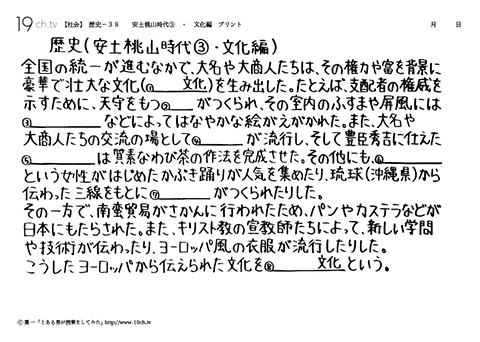 19ch.tv 【社会】 歴史－３８ 安土桃山時代③ ・ 文化編 プリント 月 日
歴史(安土桃山時代③・文化編)
全国の統一が進むなかで、大名や大商人たちは、その権力や富を背景に
豪華で壮大な文化(① 文化)を生み出した。たとえば、支配者の権威を
示すために、天守をもつ② がつくられ、その室内のふすまや屏風には
③ などによってはなやかな絵がえがかれた。また、大名や
大商人たちの交流の場として④ が流行し、そして豊臣秀吉に仕えた
⑤ は質素なわび茶の作法を完成させた。その他にも、⑥
という女性がはじめたかぶき踊りが人気を集めたり、琉球(沖縄県)から
伝わった三線をもとに⑦ がつくられたりした。
その一方で、南蛮貿易がさかんに行われたため、パンやカステラなどが
日本にもたらされた。また、キリスト教の宣教師たちによって、新しい学問
や技術が伝わったり、ヨーロッパ風の衣服が流行したりした。
こうしたヨーロッパから伝えられた文化を⑧ 文化という。
Ⓒ 葉一「とある男が授業をしてみた」http://www.19ch.tv